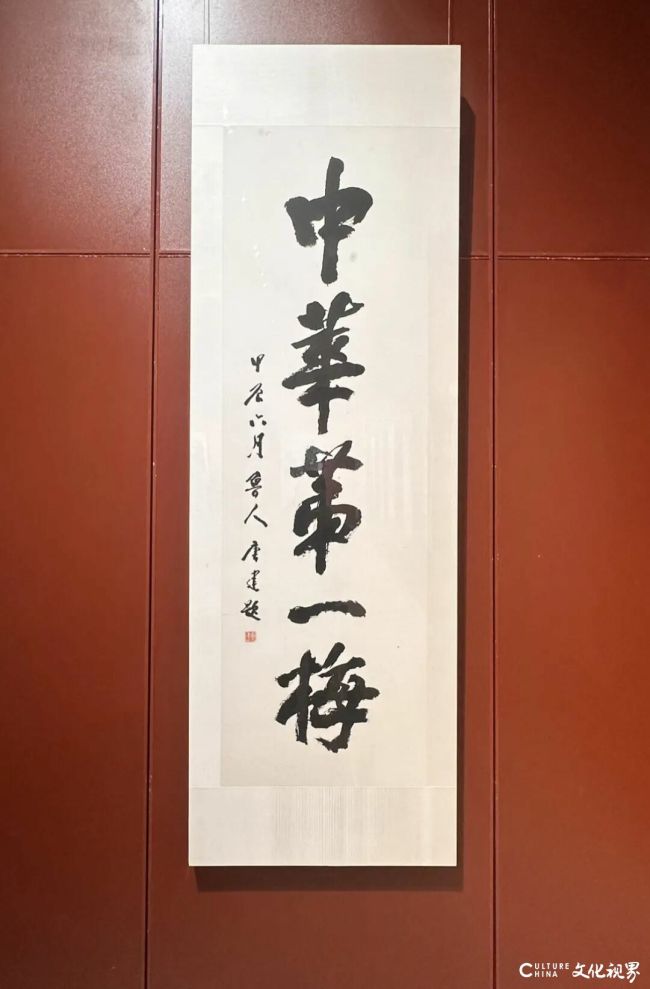 中華第一梅
甲辰六月魯人唐建題
CULTURE CHINA 文化视界